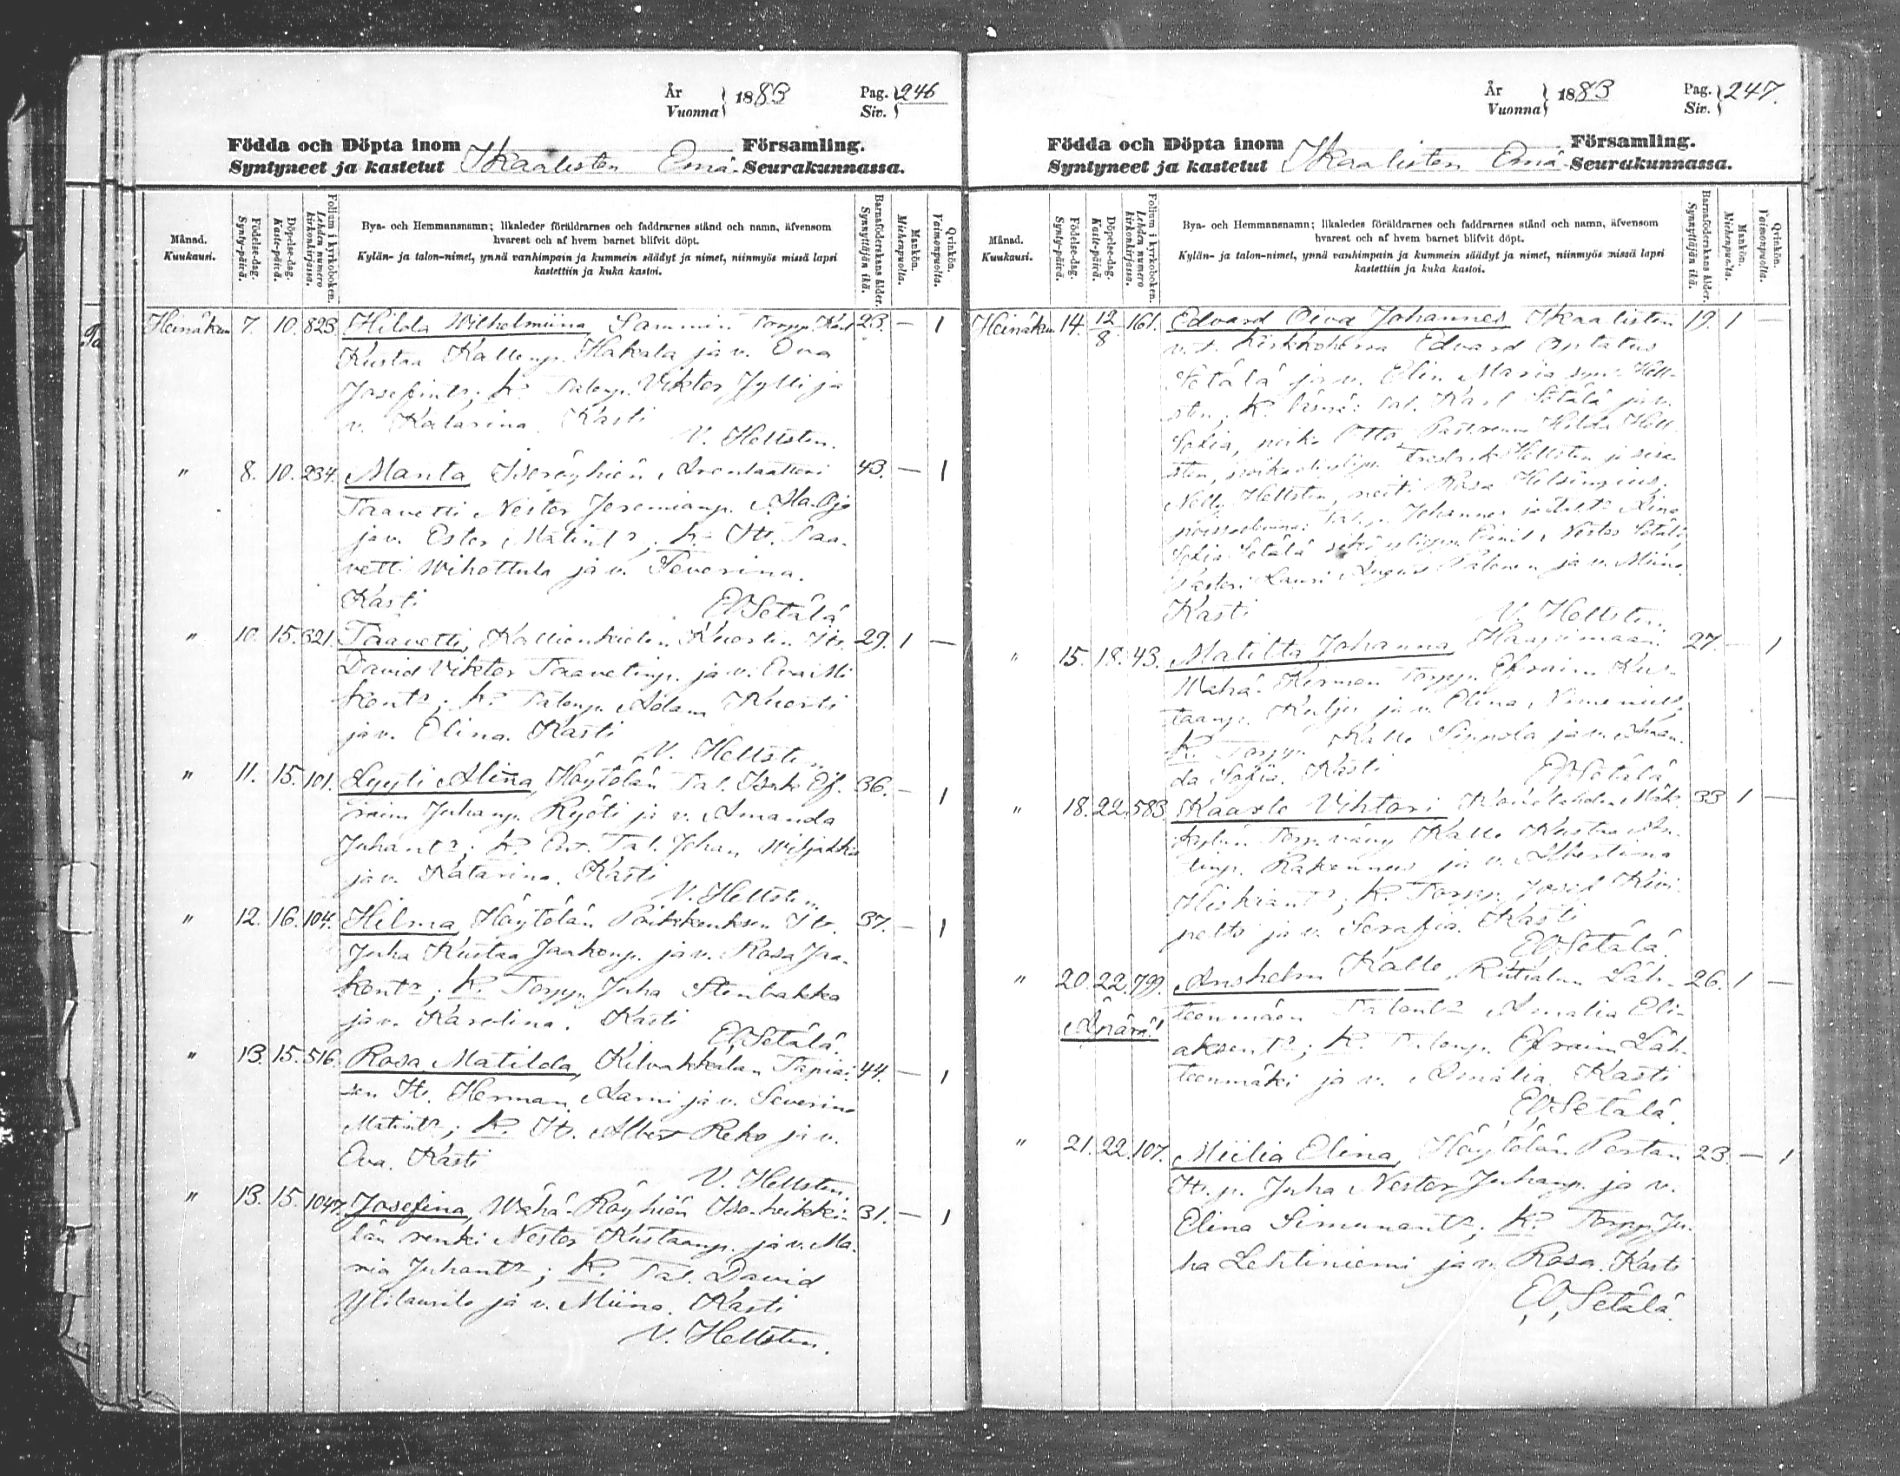 År
Vuonna 1883 Pag. 246
Siv.
Födda och Döpta inom Ikaalisten Emä- Församling.
Syntyneet ja kastetut Seurakunnassa.
Månad.
Kuukausi.
Födelse-dag.
Synty-päivä.
Döpelse-dag.
Kaste-päivä.
Folium i kyrkoboken.
Lehden numero kirkonkirjassa.
Bya- och Hemmansnamn; likaledes föräldrarnes och faddrarnes stånd och namn, äfvensom
hvarest och af hvem barnet blifvit döpt.
Kylän- ja talon-nimet, ynnä vanhimpain ja kummein säädyt ja nimet, niinmyös missä lapsi
kastettiin ja kuka kastoi.
Barnaföderskans ålder.
Synnyttäjän ikä.
Mankön.
Miehenpuolta.
Qvinkön.
Vaimonpuolta.
Heinäkuu 7. 10. 823. Hilda Wilhelmiina, Sammin Torpp. Karl 23. — 1
Kustaa Kallenp. Hakala ja v. Eva
Josefint^r; K: Talonp. Viktor Jylli ja
v. Katarina. Kasti
V. Hellsten.
" 8. 10. 234. Manta, 43. — 1
Taavetti Nestor Jeremianp. Ala
ja v. Ester Matint^r; K: Its. Taa-
vetti Wihottula ja v. Severina.
Kasti EOSetälä
" 10. 15. 321. Taavetti, Kallionkielen Kuoslin Its. 29. 1 —
David Viktor Taavetinp. ja v. Eva Mi
kont^r; K: Talonp. Adam Kuosti
ja v. Elina. Kasti
V. Hellsten
" 11. 15. 101. Lyyti Alina, Höytölän Tal. Isak Ef- 36. — 1
raim Juhanp. Ryöti ja v. Amanda
Juhant^r; K: Ent. Tal. Johan Wiljakka
ja v. Katarina. Kasti
V. Hellsten.
" 12. 16. 104. Hilma, Höytölän Poikkeuksen Its. 37. — 1
Juha Kustaa Jaakonp. ja v. Rosa Jaa-
kont^r; K: Torpp. Juha Stenbakka
ja v. Karolina. Kasti
EOSetälä.
" 13. 15. 516. Rosa Matilda, Kilvakkalan Tapiai- 44. — 1
sen Its. Herman Aarni ja v. Severina
Matint^r; K: Its. Albert Reko ja v.
Eva. Kasti
V. Hellsten.
" 13. 15. 1047. Josefina, Wähä-Röyhiön Isonheikki- 31. — 1
län renki Nestor Kustaanp. ja v. Ma-
ria Juhant^r; K: Tal. David
Ylilaurila ja v. Miina. Kasti
V. Hellsten.
År
Vuonna 1883 Pag. 247.
Siv.
Födda och Döpta inom Ikaalisten Emä- Församling.
Syntyneet ja kastetut Seurakunnassa.
Månad.
Kuukausi.
Födelse-dag.
Synty-päivä.
Döpelse-dag.
Kaste-päivä.
Folium i kyrkoboken.
Lehden numero kirkonkirjassa.
Bya- och Hemmansnamn; likaledes föräldrarnes och faddrarnes stånd och namn, äfvensom
hvarest och af hvem barnet blifvit döpt.
Kylän- ja talon-nimet, ynnä vanhimpain ja kummein säädyt ja nimet, niinmyös missä lapsi
kastettiin ja kuka kastoi.
Barnaföderskans ålder.
Synnyttäjän ikä.
Mankön.
Miehenpuolta.
Qvinkön.
Vaimonpuolta.
Heinäkuu 14. 12/8 161. Edvard Oiva Johannes, Ikaalisten 19. 1 —
v.t. Kirkkoherra Edvard Optatus
Setälä ja v. Elin Maria synt. Hell-
sten; K: läsnä: Tal. Karl Setälä ja v.
Sofia, neiti Otto, Pastorinna Hilda Hell-
sten, Fredrik Hellsten ja sisar
Nelly Hellsten, neiti Rosa Helsingius;
poissaolevina: Tal.p. Johannes ja Tal.t^r Lina
Sofia Setälä sekä yliopp. Emil Nestor Setälä
Pastori Lauri August Palonen ja v. Miina.
Kasti V. Hellsten.
" 15. 18. 43. Matilta Johanna, Haapimaan 27. — 1
Wähä-Kirmon Torpp. Efraim Kus-
taanp. Kulju ja v. Elina
K: Torpp. Kalle ja v. Aman-
da Sofia. Kasti EOSetälä
" 18. 22. 583. Kaarlo Vihtori, Kovelahden Mäk- 33 1 —
kylän Torp. Kalle Kustaa An-
tinp. Rakennus ja v. Albertina
Hiskiant^r; K: Torpp. Josid Kivi-
pelto ja v. Serafia. Kasti
EOSetälä.
" 20. 22. 799. Anshelm Kalle, Riitialan Läh- 26. 1 —
Äpärä!
teenmäen Talont^r Amalia Eli-
aksent^r; K: Talonp. Efraim Läh-
teenmäki ja v. Amalia. Kasti
EOSetälä.
" 21. 22. 107. Miilia Elina, Höytölän Pertan 23. — 1
Its.p. Juha Nestor Juhanp. ja v.
Elina Simunant^r; K: Torpp. Ju-
ha Lehtiniemi ja v. Rosa. Kasti
EOSetälä.